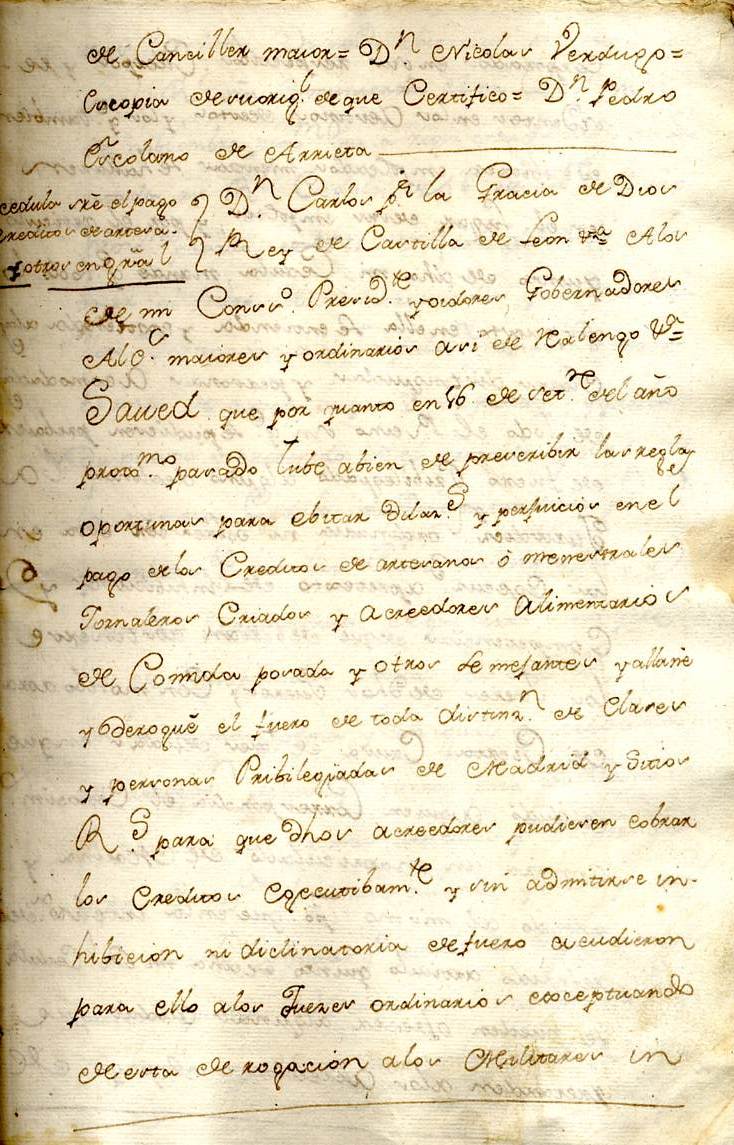 de Canciller maior= Dn. Nicolas Verdugo=
Es copia de su orig.l de que Certifico= Dn. Pedro
Escolano de Arrieta
Cedula sre. el pago
Creditos de artesa.
y otros en gral
Dn. Carlos pr. la Gracia de Dios
Rey de Castilla de Leon &a A los
de mi Conso. Presidte. y oidores, Gobernadores
Alcs. maiores y ordinarios asi de Realengo &a=
Saved que por quanto en 16. de Setre. del año
proxmo. pasado tube abien de prescribir las reglas
oportunas para ebitar dilazs. y perjuicios en el
pago de los Creditos de artesanos ô menestrales
Jornaleros Criados y Acreedores Alimentarios
de Comida posada y otros Semejantes y allane
y derogué el fuero de toda distinzn. de Clases
y personas Pribilegiadas de Madrid y Sitios
Rs. para que dhos acreedores pudiesen cobrar
los Creditos Egecutibamte. y sin admitirse in-
hibicion ni diclinatoria de fuero acudieron
para ello a los Juezes ordinarios exceptuando
de esta derogacion a los Militares in